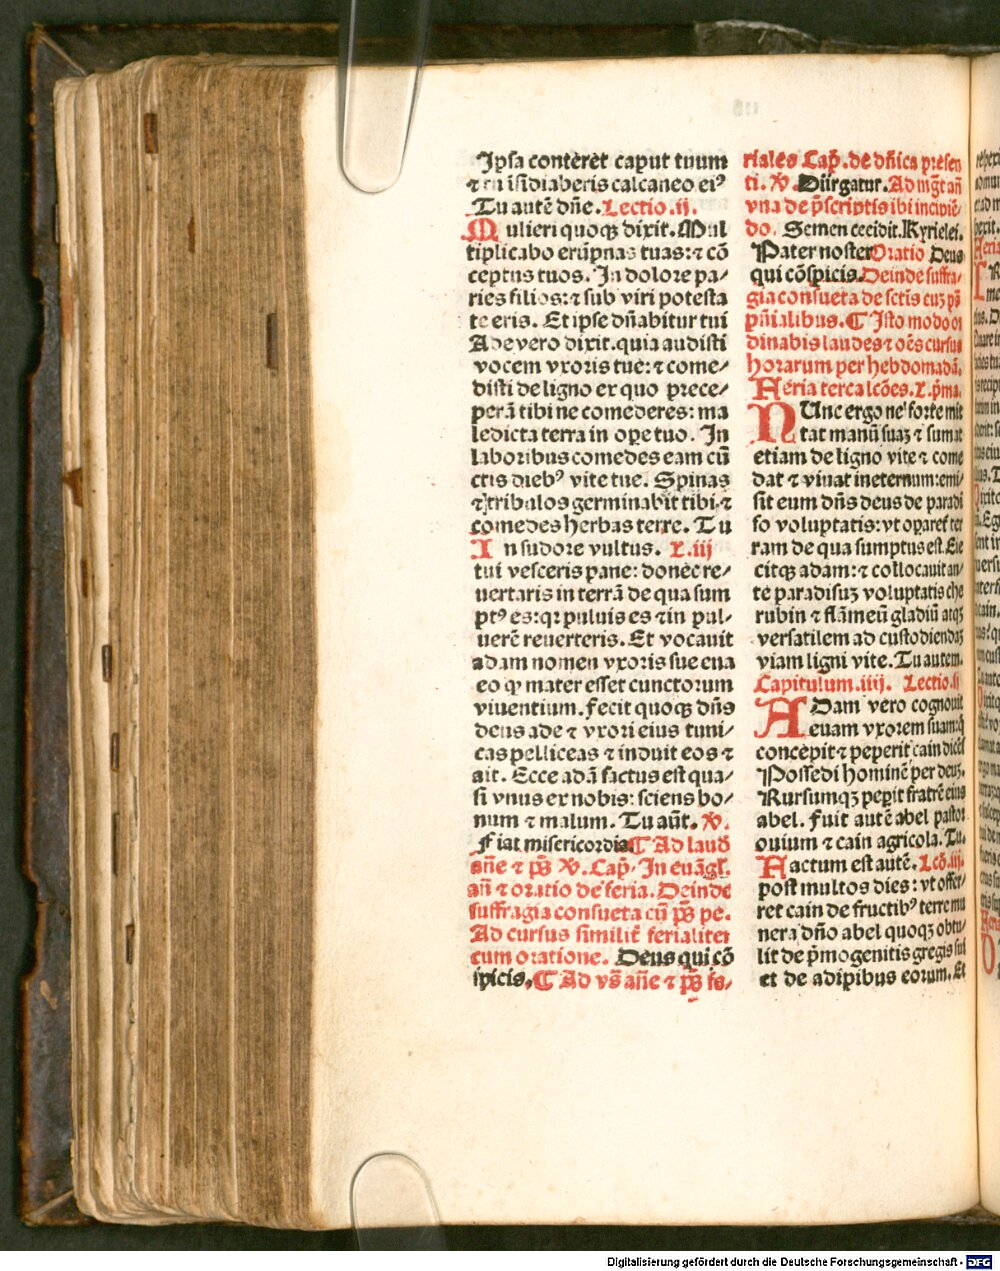 Ipsa conteret caput tuum
⁊ tu īsidiaberis calcaneo eiꝰ
Tu autē dn̄e. Lectio .ij.
Mulieri quoqꝫ dixit. Mul
tiplicabo erūpnas tuas: ⁊ cō
ceptus tuos. In dolore pa⸗
ries filios: ⁊ sub viri potesta
te eris. Et ipse dn̄abitur tui
Ade vero dixit. quia audisti
vocem vxoris tue: ⁊ come⸗
disti de ligno ex quo prece⸗
perā tibi ne comederes: ma
ledicta terra in ope tuo. In
laboribus comedes eam cū
ctis diebꝰ vite tue. Spinas
⁊ tribulos germinabit tibi. ⁊
comedes herbas terre. Tu
In sudore vultus. L.iij
tui vesceris pane: donec re⸗
uertaris in terrā de qua sum
ptꝰ es: qꝛ puluis es ⁊ in pul⸗
uerē reuerteris. Et vocauit
adam nomen vxoris sue eua
eo ꝙ mater esset cunctorum
viuentium. fecit quoqꝫ dn̄s
deus ade ⁊ vxori eius tuni⸗
cas pelliceas ⁊ induit eos ⁊
ait. Ecce adā factus est qua⸗
si vnus ex nobis: sciens bo⸗
num ⁊ malum. Tu aūt. ℣.
Fiat misericordia. ¶ Ad laud̄
an̄e ⁊ ps̄ ℣. Cap̄. In euāgl.
an̄ ⁊ oratio de feria. Deinde
suffragia consueta cū ps̄ pe.
Ad cursus similit̄ ferialiter
cum oratione. Deus qui cō
spicis. ¶ Ad vs̄ an̄e ⁊ ps̄ fe⸗
riales Cap̄. de dn̄ica presen
ti. ℣. Dirigatur. Ad mḡt an̄
vna de p̄scriptis ibi incipiē⸗
do. Semen cecidit. Kyrielei.
Pater noster Oratio Deus
qui cōspicis. Deinde suffra⸗
gia consueta de sctīs cuꝫ ps̄
pn̄ialibus. ¶ Isto modo or
dinabis laudes ⁊ oēs cursus
horarum per hebdomadā.
Feria terca lcōes. L. p̄ma.
NUnc ergo ne forte mit
tat manū suaꝫ ⁊ sumat
etiam de ligno vite ⁊ come
dat ⁊ viuat ineternum: emi⸗
sit eum dn̄s deus de paradi
so voluptatis: vt oparet̄ ter
ram de qua sumptus est. Eie
citqꝫ adam: ⁊ collocauit an⸗
te paradisuꝫ voluptatis che
rubin ⁊ flāmeū gladiū atqꝫ
versatilem ad custodiendaꝫ
viam ligni vite. Tu autem.
Capitulum .iiij. Lectio .ij
ADam vero cognouit
euam vxorem suam: q̄
concepit ⁊ peperit cain dicēs
Possedi hominē per deuꝫ.
Rursumqꝫ pepit fratrē eius
abel. Fuit autē abel pastor
ouium ⁊ cain agricola. Tu.
Factum est autē. Lcō. iij.
post multos dies: vt offer⸗
ret cain de fructibꝰ terre mu
nera dn̄o abel quoqꝫ obtu⸗
lit de p̄mogenitis gregis sui
et de adipibus eorum. Et
Digitalisierung gefördert durch die Deutsche Forschungsgemeinschaft - DFG